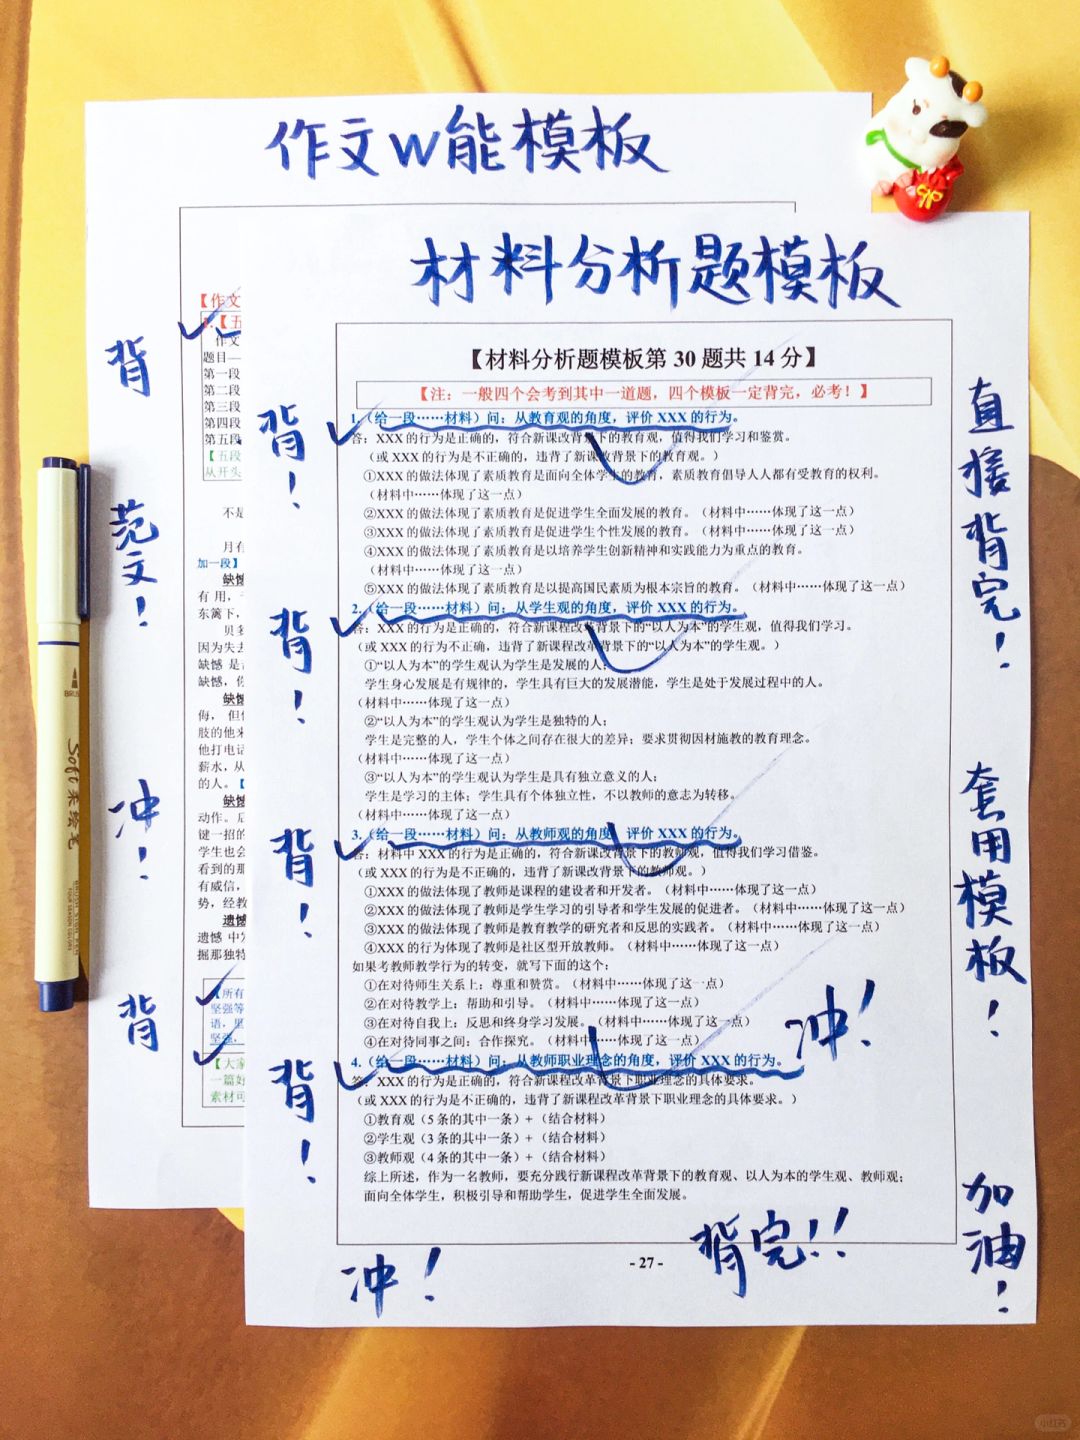 作文w能模板
材料分析题模板
【材料分析题模板第 30 题共 14 分】
【注：一般四个会考到其中一道题，四个模板一定背完，必考！】
1.（给一段……材料）问：从教育观的角度，评价 XXX 的行为。
答：XXX 的行为是正确的，符合新课改背景下的教育观，值得我们学习和鉴赏。
（或 XXX 的行为是不正确的，违背了新课改背景下的教育观。）
①XXX 的做法体现了素质教育是面向全体学生的教育，素质教育倡导人人都有受教育的权利。
（材料中……体现了这一点）
②XXX 的做法体现了素质教育是促进学生全面发展的教育。（材料中……体现了这一点）
③XXX 的做法体现了素质教育是促进学生个性发展的教育。（材料中……体现了这一点）
④XXX 的做法体现了素质教育是以培养学生创新精神和实践能力为重点的教育。
（材料中……体现了这一点）
⑤XXX 的做法体现了素质教育是以提高国民素质为根本宗旨的教育。（材料中……体现了这一点）
2.（给一段……材料）问：从学生观的角度，评价 XXX 的行为。
答：XXX 的行为是正确的，符合新课程改革背景下的“以人为本”的学生观，值得我们学习。
（或 XXX 的行为不正确，违背了新课程改革背景下的“以人为本”的学生观。）
①“以人为本”的学生观认为学生是发展的人；
学生身心发展是有规律的，学生具有巨大的发展潜能，学生是处于发展过程中的人。
（材料中……体现了这一点）
②“以人为本”的学生观认为学生是独特的人；
学生是完整的人，学生个体之间存在很大的差异；要求贯彻因材施教的教育理念。
（材料中……体现了这一点）
③“以人为本”的学生观认为学生是具有独立意义的人；
学生是学习的主体；学生具有个体独立性，不以教师的意志为转移。
（材料中……体现了这一点）
3.（给一段……材料）问：从教师观的角度，评价 XXX 的行为。
答：材料中 XXX 的行为是正确的，符合新课改背景下的教师观，值得我们学习借鉴。
（或 XXX 的行为是不正确的，违背了新课改背景下的教师观。）
①XXX 的做法体现了教师是课程的建设者和开发者。（材料中……体现了这一点）
②XXX 的做法体现了教师是学生学习的引导者和学生发展的促进者。（材料中……体现了这一点）
③XXX 的做法体现了教师是教育教学的研究者和反思的实践者。（材料中……体现了这一点）
④XXX 的行为体现了教师是社区型开放教师。（材料中……体现了这一点）
如果考教师教学行为的转变，就写下面的这个：
①在对待师生关系上：尊重和赞赏。（材料中……体现了这一点）
②在对待教学上：帮助和引导。（材料中……体现了这一点）
③在对待自我上：反思和终身学习发展。（材料中……体现了这一点）
④在对待同事之间：合作探究。（材料中……体现了这一点）
4.（给一段……材料）问：从教师职业理念的角度，评价 XXX 的行为。
答：XXX 的行为是正确的，符合新课程改革背景下职业理念的具体要求。
（或 XXX 的行为是不正确的，违背了新课程改革背景下职业理念的具体要求。）
①教育观（5 条的其中一条）+（结合材料）
②学生观（3 条的其中一条）+（结合材料）
③教师观（4 条的其中一条）+（结合材料）
综上所述，作为一名教师，要充分践行新课程改革背景下的教育观、以人为本的学生观、教师观；
面向全体学生，积极引导和帮助学生，促进学生全面发展。
- 27 -
背！
背！
背！
背！
冲！
背完！！
冲！
直接背完！
套用模板！
加油！
背
范文！
冲！
背
【作文
1.【五
作文
题目—
第一段
第二段
第三段
第四段
第五段
【五段
从开头
不是
月有
加一段】
缺憾
有用，
东篱下，
贝多
因为失去
缺憾 是
缺憾，你
缺憾
侮， 但
肢的他来
他打电话
薪水，从
的人。【
缺憾
动作。后
键一招的
学生也会
看到的那
有威信，
势，经教
遗憾
遗憾 中发
掘那独特
【所有
坚强等
语，里
坚强，
【大家
一篇好
素材可
Soft 柔绘笔
小红书